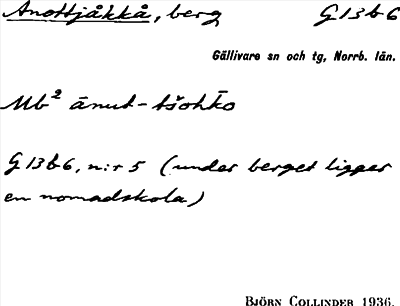 Anottjåkkå, berg G13b6
Gällivare sn och tg, Norrb. län.
Mb² ānut-tšoħ̄ko
G13b6, n:r 5 (under berget ligger
en nomadskola)
BJÖRN COLLINDER 1936.